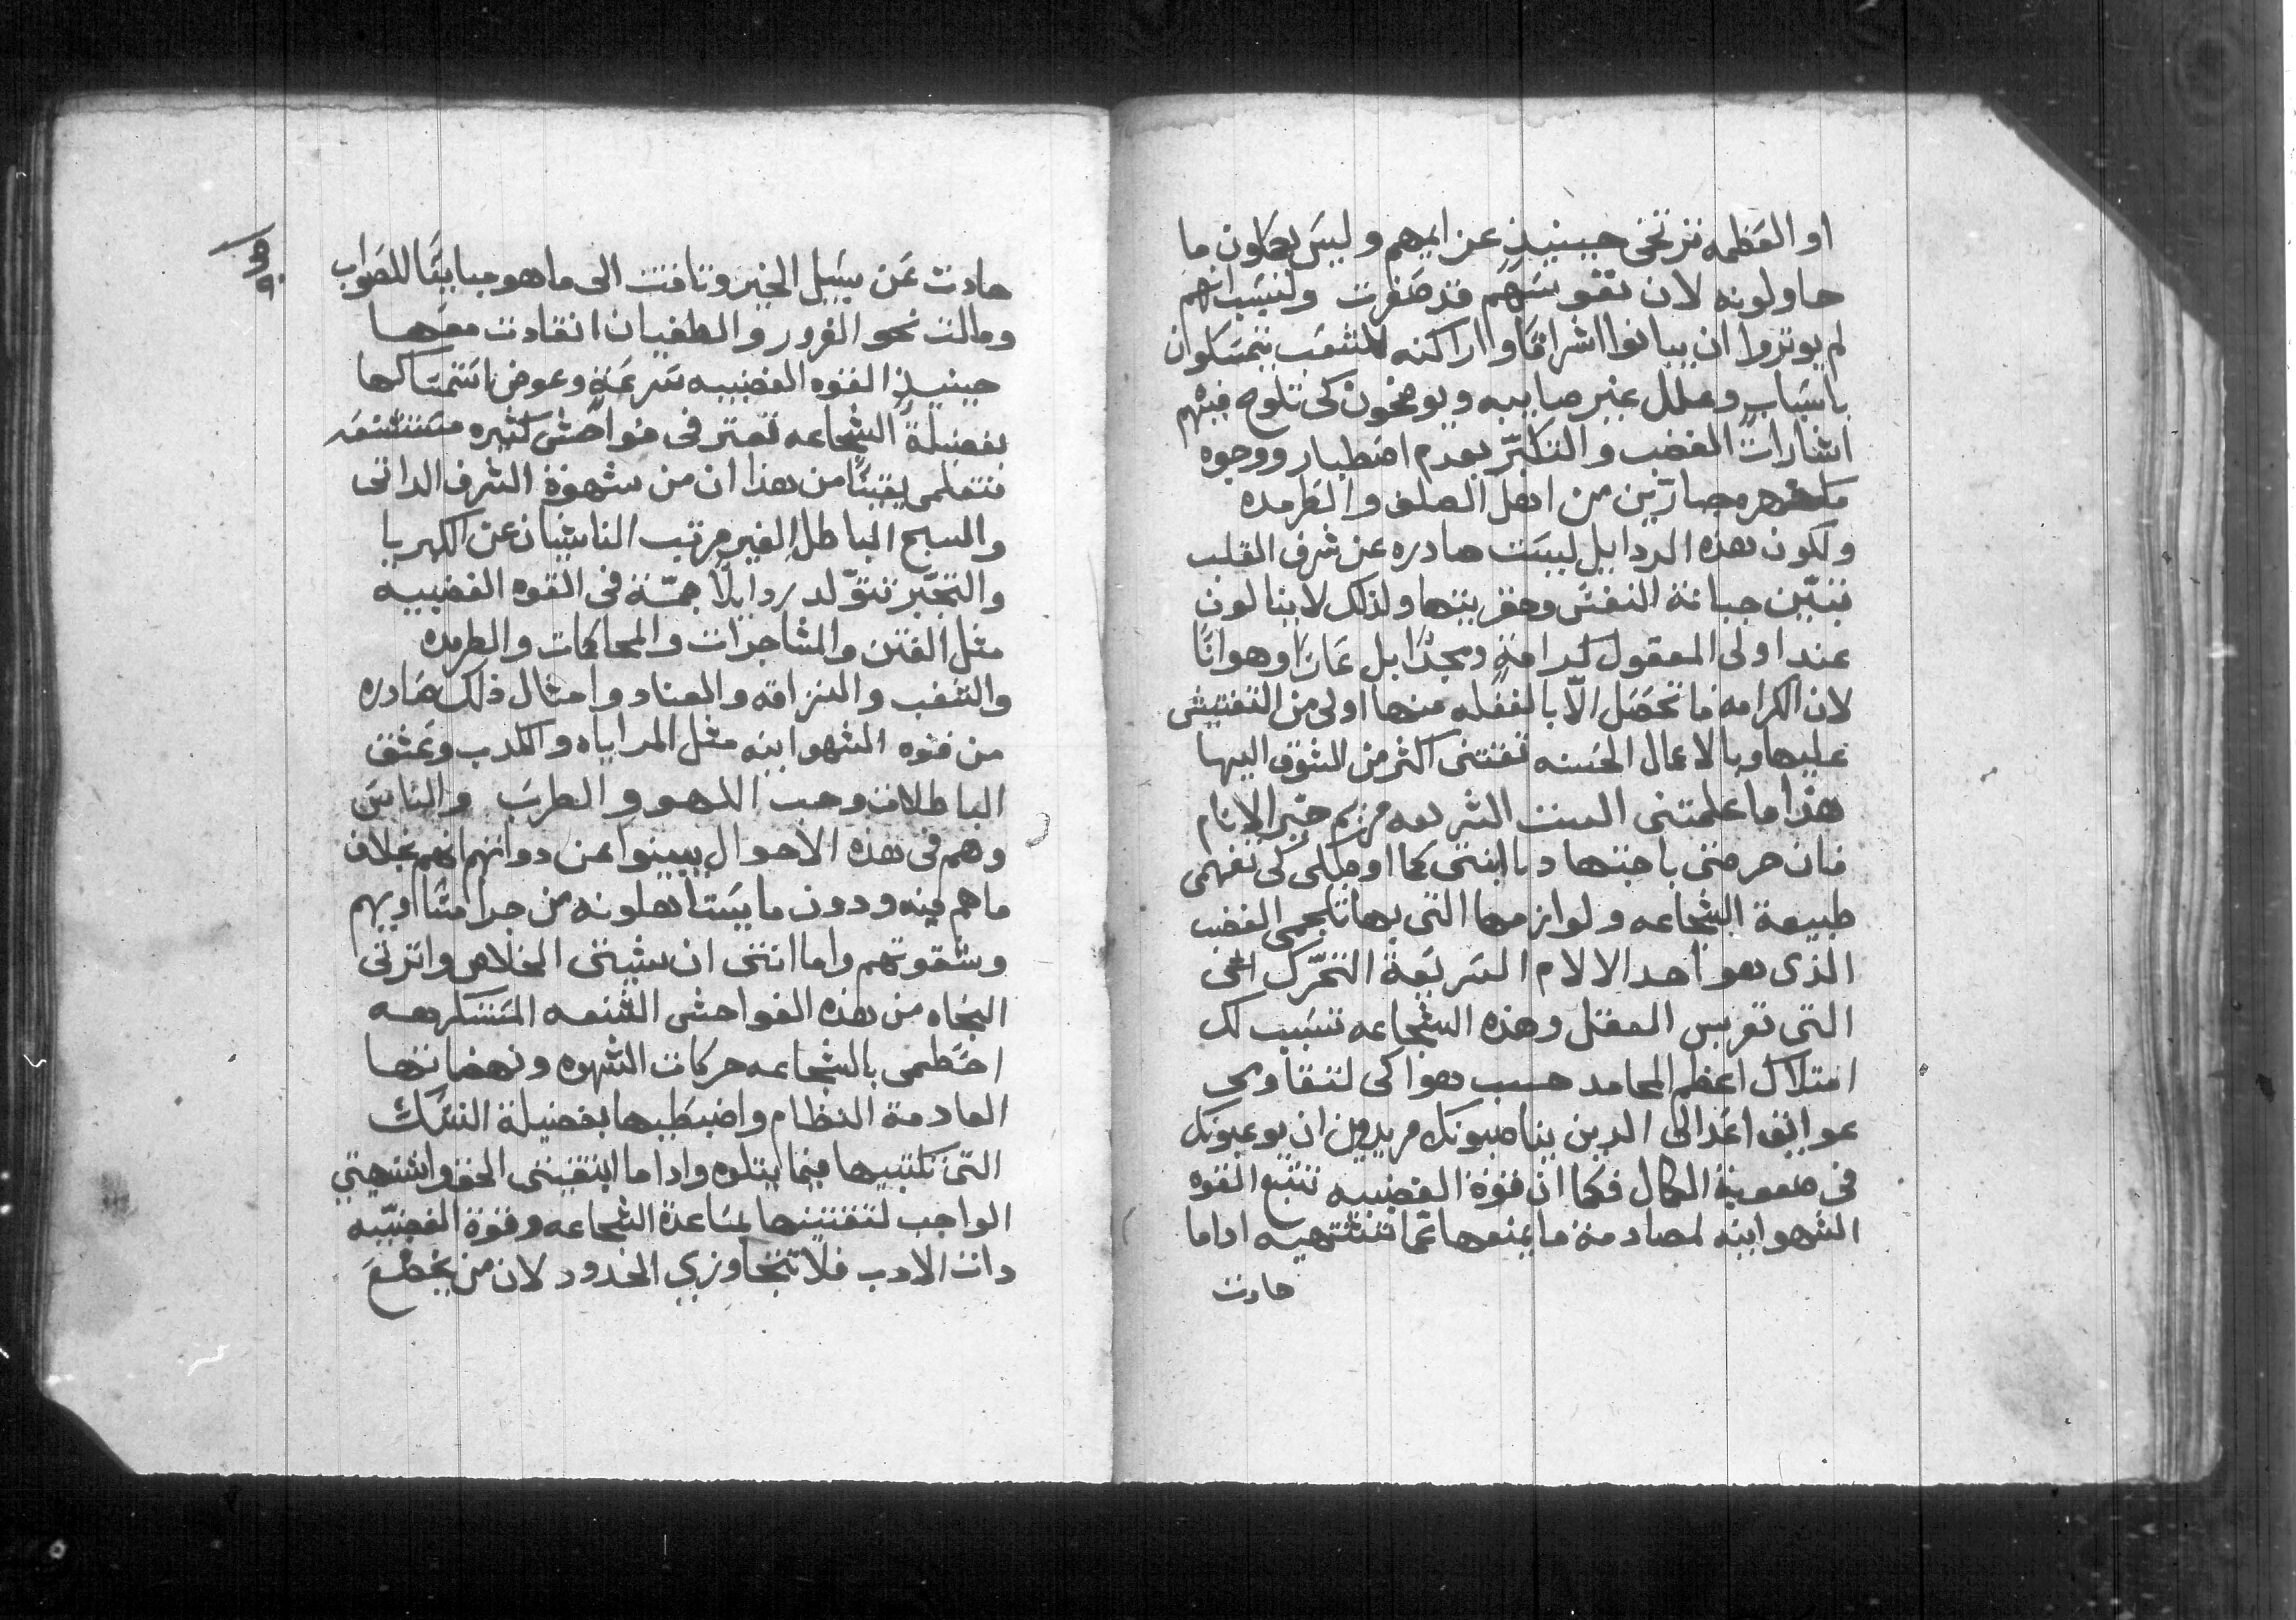 او العظمه ترتخى حينيذٍ عزايمهم وليسَ يصلون ما
حاولونه لان نفوسَهم قد صَغرت ولسَبب انهم
لم يوثروا ان يبانوا اشراقا واراكنه للشعَب يتمسَكوا
باسَباب وعلل غير صاييبه ويوضحون كى تلوح فيهم
اشارات الغضب والتكبّر بعدم اضطبار ووجوه
من اهل الصلف والطرمده
ولكون هذه الردايل ليسَت صادره عن شرف القلب
تبيّن جبانة النفسَ وحقريتها ولذلك لا ينالون
عند اولى المعقول كرامةٍ ومجدًا بل عَارًا وهوانًا
لان الكرامه ما تحصَل الّا بالغفله منها اولى من التفتيش
عليها وبالاعمال الحَسنه تقتنى اكثر من الشوق اليها
هذا ما علمتنى الست الشريفه مريم خيّر الانام
فان حرصتى باجتهاد يا ابنتى كما اوجبلى كى تفهمى
طبيعة الشجاعه ولوازمها التى بها تلجمى الغضب
الذى هو احد الالام السَريعَة التحرّك
التى تعربس العقل وهذه الشجاعه تسَبب لك
امتلاك اعظم المحامد حسب هوا كى لتقاومى
عوايق اعَدا لكى الدين يناصبونك مريدين ان يوعبونك
فى صعوبة الكمال فكما ان قوة الغضبيه تتبع القوه
الشهوانيه لمصادمة ما يمنعها عمّا تشتهيه اداما
حادت
حادت عَن سبَيل الخير وتاقت الى ما هو مباينًا للصَواب
ومالت نحو الغرور والطغيان انقادت معَها
حينيذٍ القوه الغضبيه سَرعَةٍ وعوض استمسَاكها
بفضيلة الشجاعه تعتر فى فواحش كثيره مستشنعَه
فتعلمى يقينًا من هذا ان من شهوة الشرف الداتى
والسبح الباطل الغير مرتب الناشيان عن الكبريا
والتجبّر تتوّلد ردايلًا جمّة فى القوه الغضبيه
مثل الفتن والمشاجرات والمحاكمات والطرمده
والشغب والنزاقه والعناد وامثال ذلك صَادره
من قوه الشهوانيه مثل المراياه والكدب وعَشق
الباطلات وحب اللهو والطربَ والناسَ
وهم فى هذه الاحوال يبينوا عن دواتهم انهم بخلاف
ما هم فيه ودون ما يسَتاهلونه من جرامتًا اويهم
وشقوتهم واما انتى ان شيتى الخلاص واترتى
النجاه من هذه الفواحش الشنعه المَستكرهه
احَطمى بالشجاعه حركات الشهوه ونهضاتها
العادمة النظام واضبَطيها بفضيلة النسَك
التى تكتبيها فيما يتلوه وادا ما ابتغيتى الحق واشتهيتى
الواجب لتقتنيها بمسَاعدة الشجاعه وقوة الغضبيّه
دات الادب فلا تتجاوزي الحدود لان من يخضَعَ